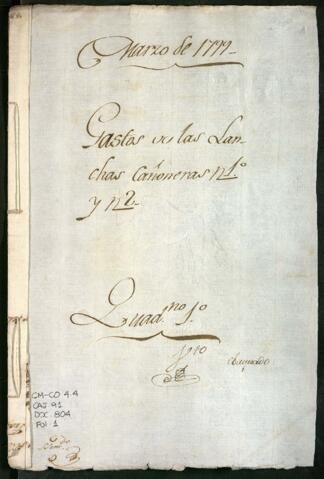 Marzo de 1799
Gastos de las Lan-
chas Cañoneras nº 1º
y nº 2.
Quadno 1º
CM-CO 4.4
CAJ. 91
DOC. 804
FOL. 1